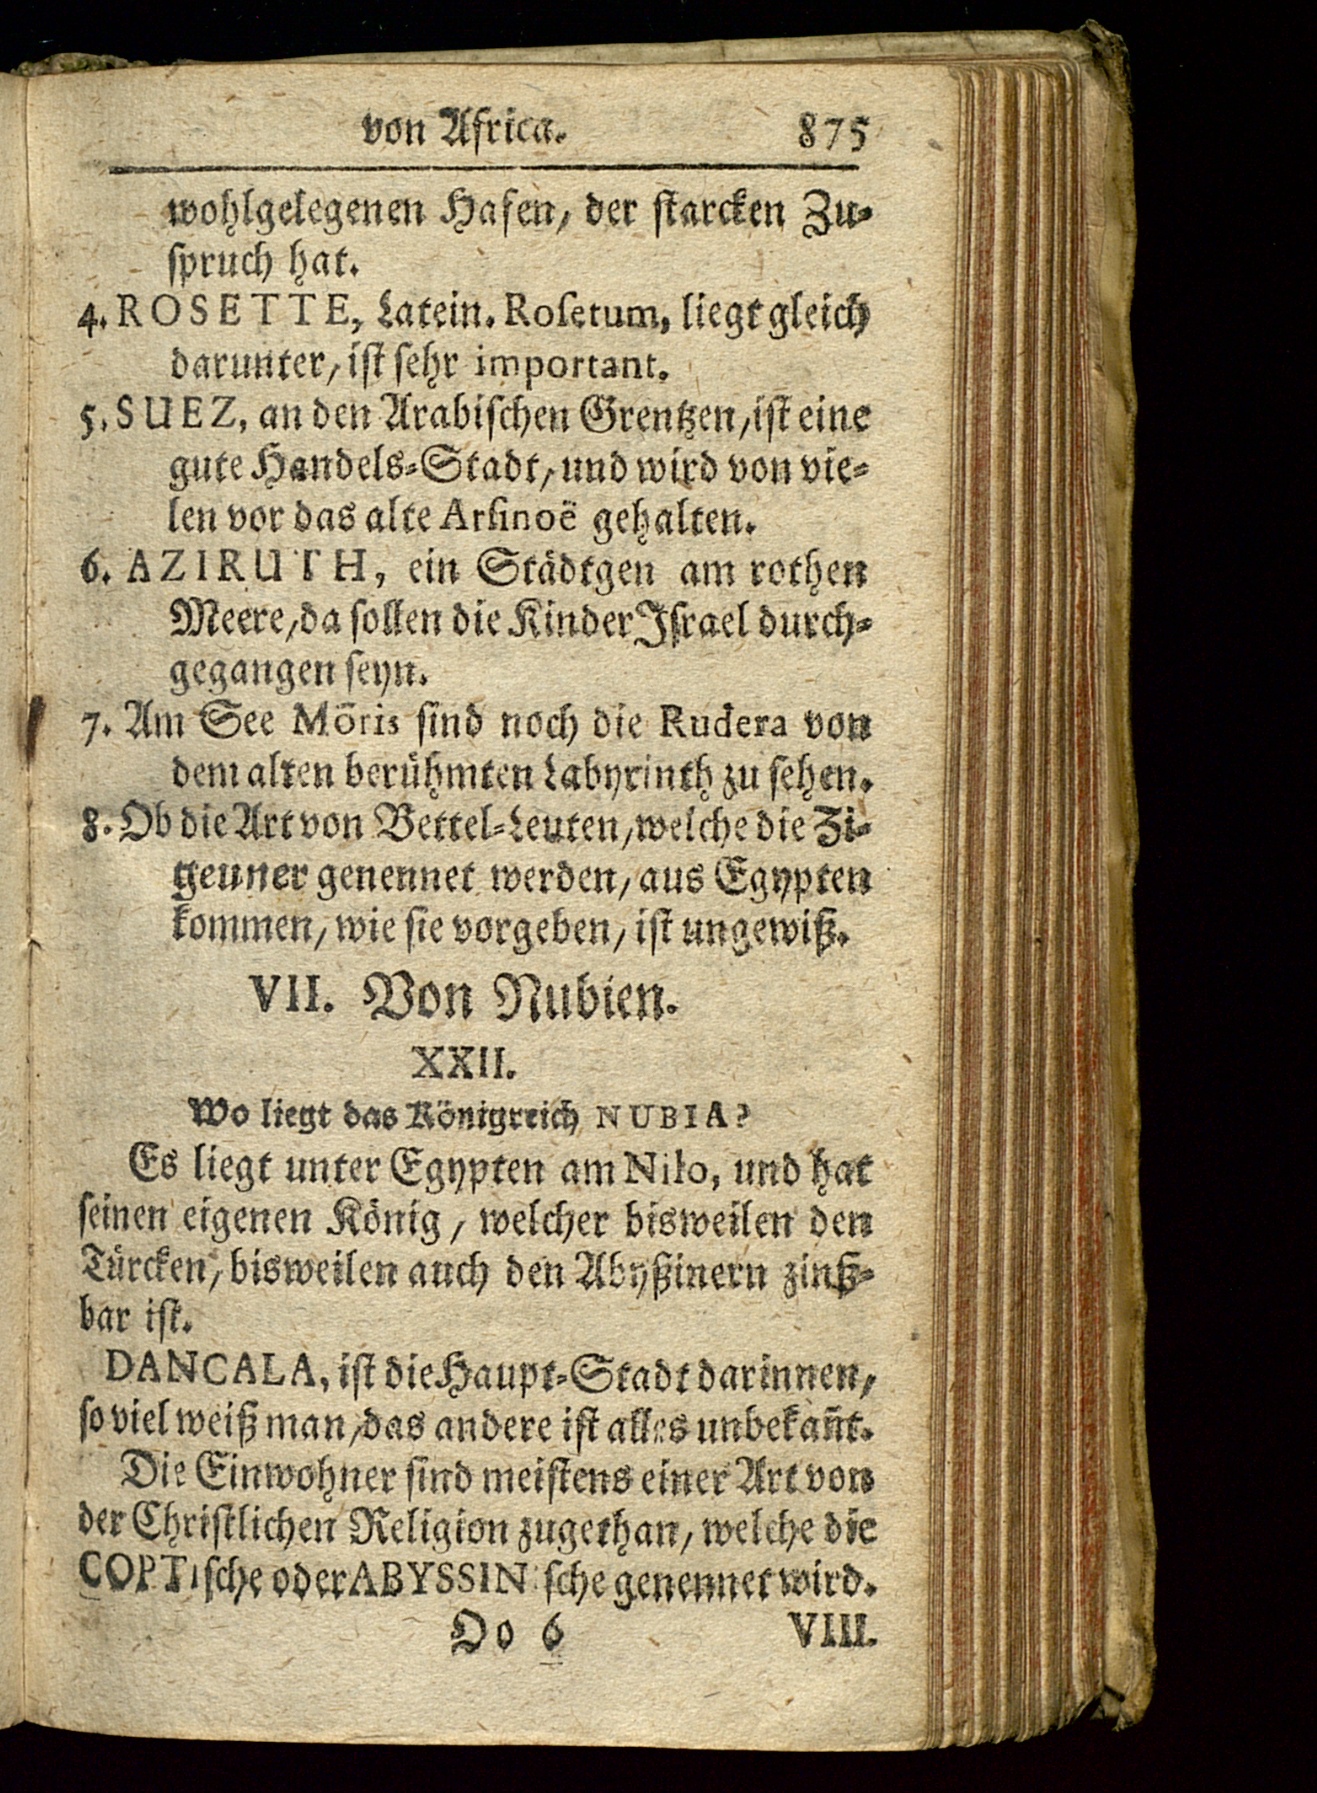 von Africa. 875
wohlgelegenen Hafen, der starcken Zu-
spruch hat.
4. ROSETTE, Latein. Rosetum, liegt gleich
darunter, ist sehr important.
5. SUEZ, an den Arabischen Grentzen, ist eine
gute Handels-Stadt, und wird von vie-
len vor das alte Arsinoë gehalten.
6. AZIRUTH, ein Städtgen am rothen
Meere, da sollen die Kinder Israel durch-
gegangen seyn.
7. Am See Möris sind noch die Rudera von
dem alten berühmten Labyrinth zu sehen.
8. Ob die Art von Bettel-Leuten, welche die Zi-
geuner genennet werden, aus Egypten
kommen, wie sie vorgeben, ist ungewiß.
VII. Von Nubien.
XXII.
Wo liegt das Königreich NUBIA?
Es liegt unter Egypten am Nilo, und hat
seinen eigenen König, welcher bisweilen den
Türcken, bisweilen auch den Abyßinern zinß-
bar ist.
DANCALA, ist die Haupt-Stadt darinnen,
so viel weiß man, das andere ist alles unbekañt.
Die Einwohner sind meistens einer Art von
der Christlichen Religion zugethan, welche die
COPTische oder ABYSSINische genennet wird.
Oo 6 VIII.